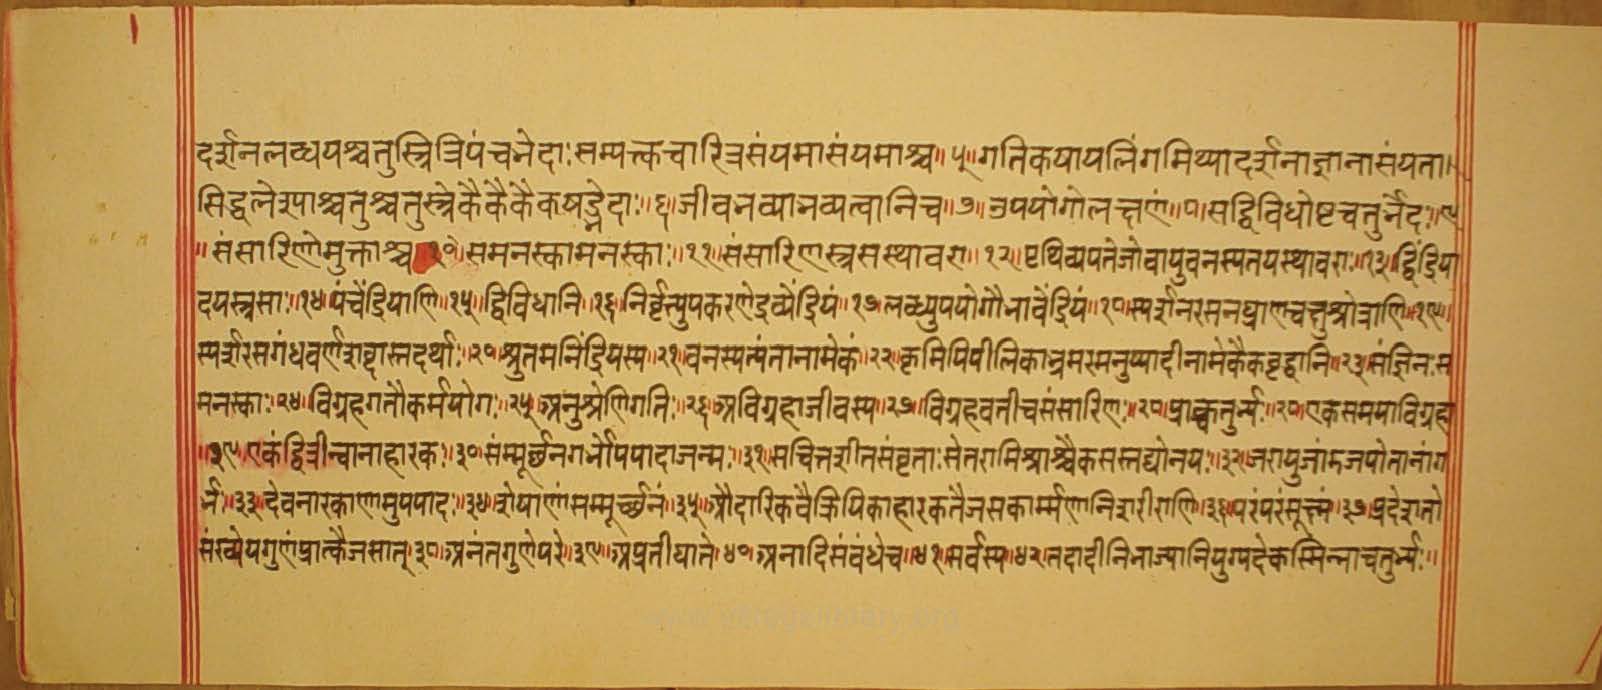 दर्शनलब्धयश्चतुस्त्रित्रिपंचभेदाः सम्यत्कचारित्रसंयमासंयमाश्च॥५॥गतिकषायलिंगमिथ्यादर्शनाज्ञानासंयता।
सिद्धलेश्पाश्चतुश्चतुस्त्रेकैकैकैकषड्भेदाः॥६॥जीवभव्याभव्यत्वानिच॥७॥उपयोगोलक्षणं॥८॥सद्विविधोष्टचतुर्भेदः॥९
॥संसारिणोमुक्ताश्च १०॥समनस्कामनस्काः॥११॥संसारिणस्त्रसस्थावरा॥१२॥पृथिव्यपतेजोवायुवनस्पतयस्थावराः॥१३॥द्विंद्रिया
दयस्त्रसाः॥१४॥पंचेंद्रियाणि॥१५॥द्विविधानि॥१६॥निर्वृत्युपकरणेद्रव्येंद्रियं॥१७॥लब्ध्युपयोगौभावेंद्रियं॥१८॥स्पर्शनरसनघ्राणचक्षुश्रोत्राणि॥१९॥
स्पर्शरसगंधवर्णशब्दास्तदर्थाः॥२०॥श्रुतमनिंद्रियस्य॥२१॥वनस्पत्यंतानामेकं॥२२॥कृमिपिपीलिकाभ्रमरमनुष्यादीनामेकैकवृद्धानि॥२३॥संज्ञिनःस
मनस्काः॥२४॥विग्रहगतौकर्मयोगः॥२५॥अनुश्रेणिगतिः॥२६॥अविग्रहाजीवस्य॥२७॥विग्रहवतीचसंसारिणः॥२८॥प्राक्चतुर्भ्यः॥२८॥एकसमयाविग्रहा
॥२९॥एकंद्वित्रीन्वानाहारकः॥३०॥संम्मूर्छनगर्भोपपादाजन्मः॥३१॥सचित्तशीतसंवृताःसेतरामिश्राश्चैकसस्तद्योनयः॥३२॥जरायुजांडजपोतानांग
र्भः॥३३॥देवनारकाणामुपपादः॥३४॥शेषाणांसम्मूर्च्छनं॥३५॥औदारिकवैक्रियिकाहारकतैजसकार्म्मणानिशरीराणि॥३६॥परंपरंसूक्ष्मं॥३७॥प्रदेशतो
संख्येयगुणंप्राक्तैजसात्॥३८॥अनंतगुणेपरे॥३९॥अप्रतीघाते॥४०॥अनादिसंबंधेच॥४१॥सर्वस्य॥४२॥तदादीनिभाज्यानियुगपदेकस्मिन्नाचतुर्भ्यः॥
www.jainqelibrary.org